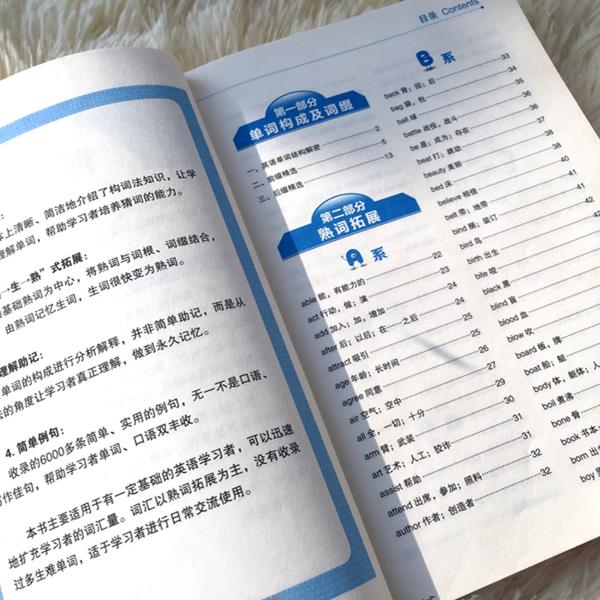 上清晰、简洁地介绍了构词法知识，让学
理解单词，帮助学习者培养猜词的能力。
生→熟”式拓展：
基础熟词为中心，将熟词与词根、词缀结合，
由熟词记忆生词，生词很快变为熟词。
理解助记：
单词的构成进行分析解释，并非简单助记，而是从
的角度让学习者真正理解，做到永久记忆。
4. 简单例句：
收录的6000多条简单、实用的例句，无一不是口语、
写作佳句，帮助学习者单词、口语双丰收。
本书主要适用于有一定基础的英语学习者，可以迅速
地扩充学习者的词汇量。词汇以熟词拓展为主，没有收录
过多生难单词，适于学习者进行日常交流使用。
目录 Contents
第一部分
单词构成及词缀
一、英语单词结构解密 2
二、前缀精选 5
三、后缀精选 13
第二部分
熟词拓展
A 系
able 能，有能力的 22
act 行动，做；演 23
add 加入；加，增加 24
after 后；以后；在……之后 24
attract 吸引 25
age 年龄；长时间 25
agree 同意 26
air 空气；空中 27
all 全，一切；十分 29
arm 臂；武装 30
art 艺术；人工；狡诈 31
assist 帮助 31
attend 出席，参加；照料 32
author 作者；创造者 32
B 系
back 背；回；后 33
bag 袋，包 34
ball 球 35
battle 战役，战斗 36
be 是；成为；存在 36
beat 打；跳动 37
beauty 美丽 38
bed 床 40
believe 相信 41
belt 带；地带 41
bind 捆；装订 41
bird 鸟 42
birth 出生
bite 咬
black 黑
blind 盲
blood 血
blow 吹
board 板，牌
boat 船；艇
body 体，躯体，人
boil 煮沸
bone 骨
book 书本
born 出
boy 男